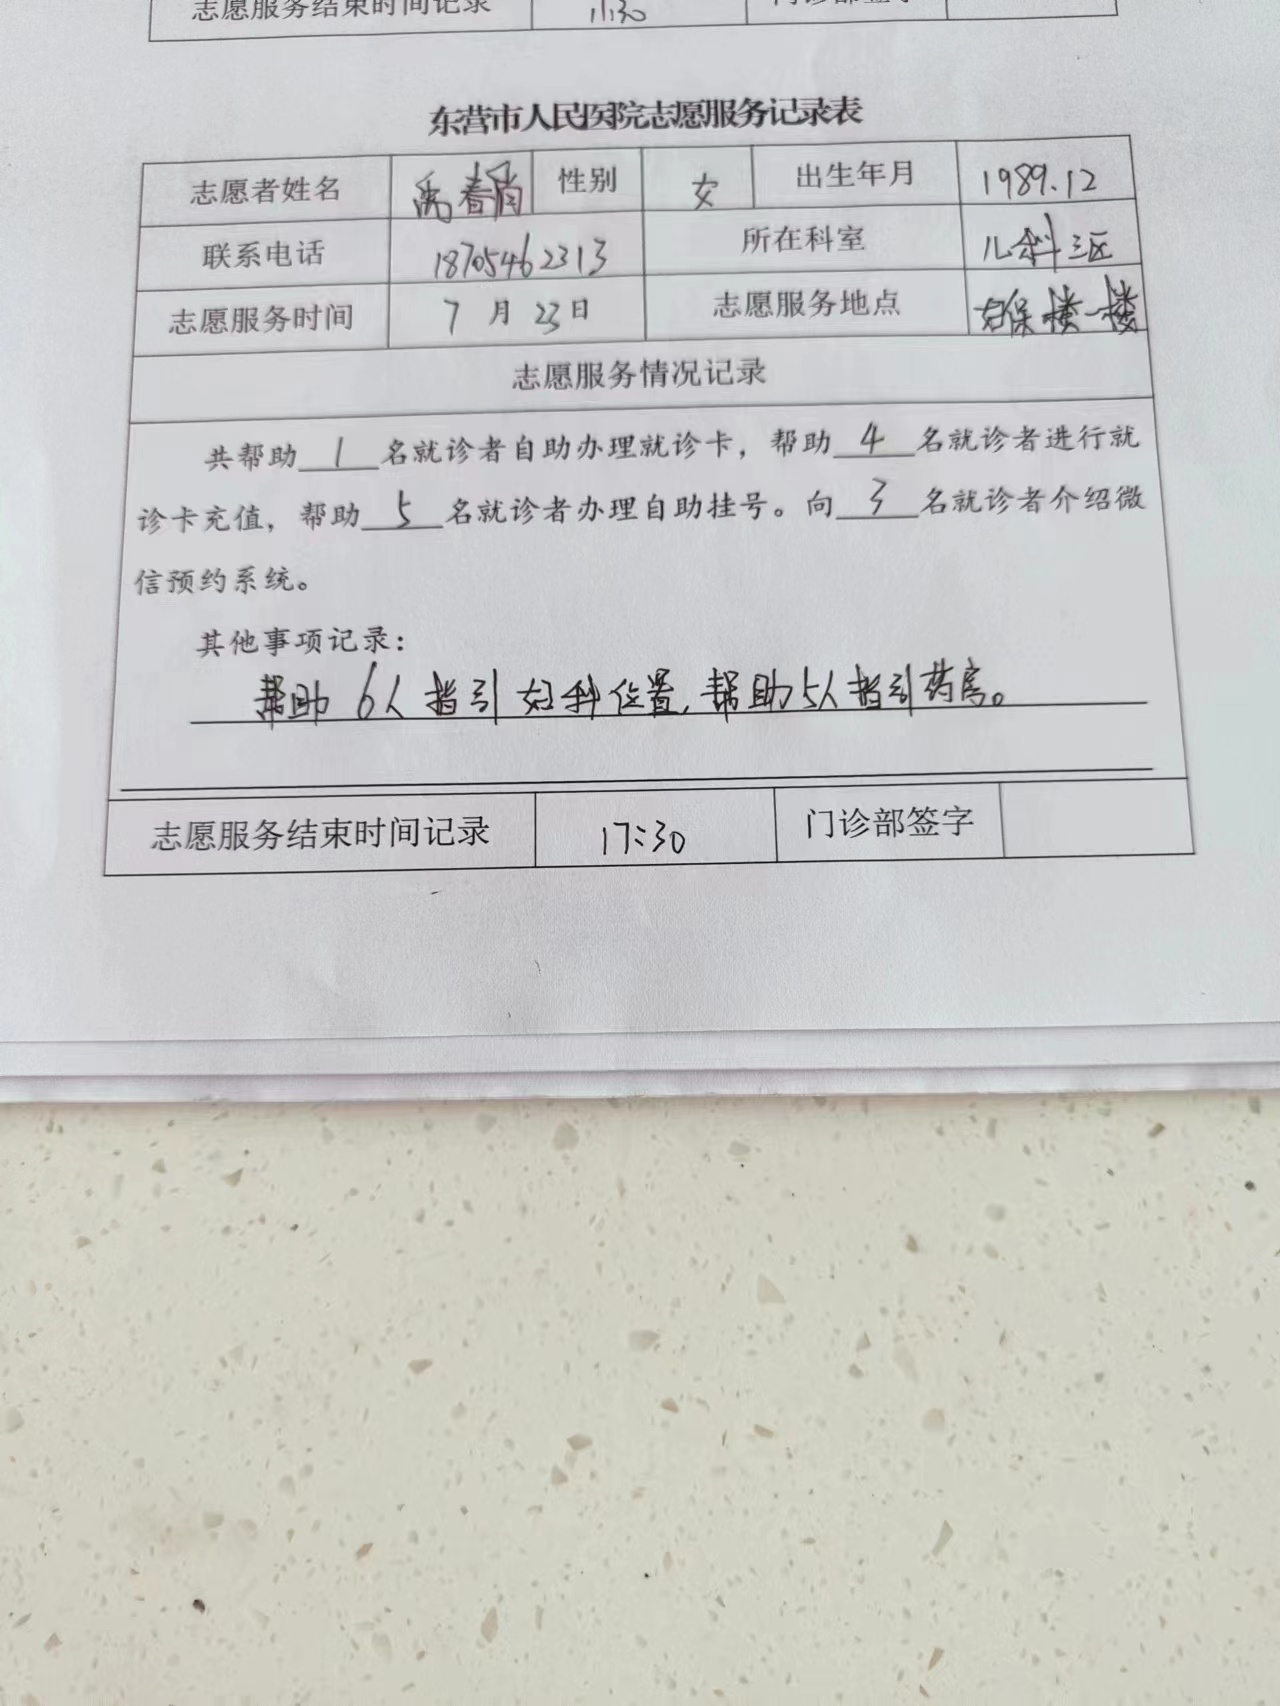 志愿服务结束时间记录 11:30 门诊部签字
东营市人民医院志愿服务记录表
志愿者姓名 禹春霄 性别 女 出生年月 1989.12
联系电话 18705462313 所在科室 儿科三区
志愿服务时间 7月23日 志愿服务地点 妇保楼一楼
志愿服务情况记录
共帮助 1 名就诊者自助办理就诊卡，帮助 4 名就诊者进行就
诊卡充值，帮助 5 名就诊者办理自助挂号。向 3 名就诊者介绍微
信预约系统。
其他事项记录：
帮助6人指引妇科位置，帮助5人指引药房。
志愿服务结束时间记录 17:30 门诊部签字